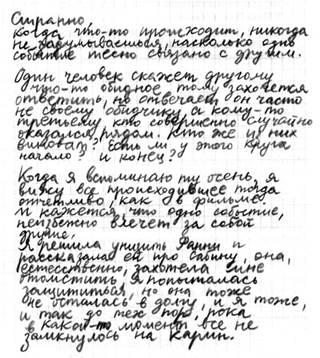 Странно,
когда что-то происходит, никогда
не задумываешься, насколько одно
событие тесно связано с другим.
Один человек скажет другому
что-то обидное, тому захочется
ответить, но отвечает он часто
не своему обидчику, а кому-то
третьему, кто совершенно случайно
оказался рядом. Кто же из них
виноват? Есть ли у этого круга
начало? и конец?
Когда я вспоминаю ту осень, я
вижу все происходившее тогда
отчетливо, как в фильме.
и кажется, что одно событие,
неизбежно влечет за собой
другие.
Я решила унизить Фанни и
рассказала ей про Сабину, она,
естественно, захотела мне
отомстить, я попыталась
защититься, но она тоже
не осталась в долгу, и я тоже,
и так до тех пор, пока
в какой-то момент все не
замкнулось на Карин.